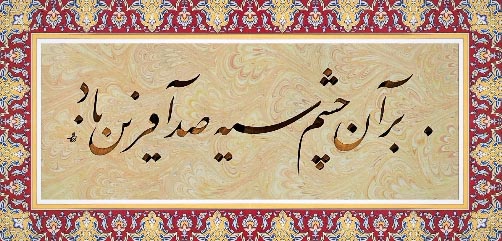 بر آن چشم سیه صد آفرین باد